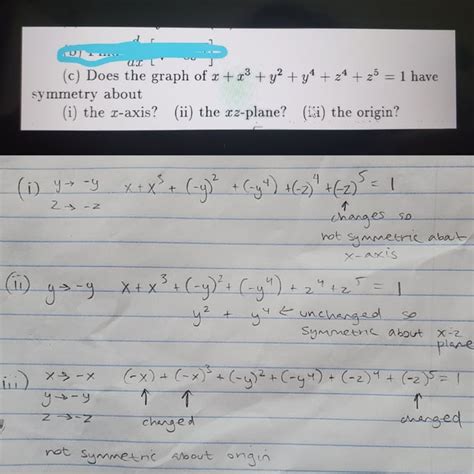 (c) Does the graph of x + x³ + y² + y⁴ + z⁴ + z⁵ = 1 have
symmetry about
(i) the x-axis? (ii) the xz-plane? (iii) the origin?
(i) y → -y x + x³ + (-y)² + (-y⁴) + (-z)⁴ + (-z)⁵ = 1
z → -z
↑
changes so
not symmetric about
x-axis
(ii) y → -y x + x³ + (-y)² + (-y⁴) + z⁴ + z⁵ = 1
y² + y⁴ ← unchanged so
symmetric about x-z
plane
iii) x → -x (-x) + (-x)³ + (-y)² + (-y⁴) + (-z)⁴ + (-z)⁵ = 1
y → -y ↑ ↑ ↑
z → -z changed changed
not symmetric about origin